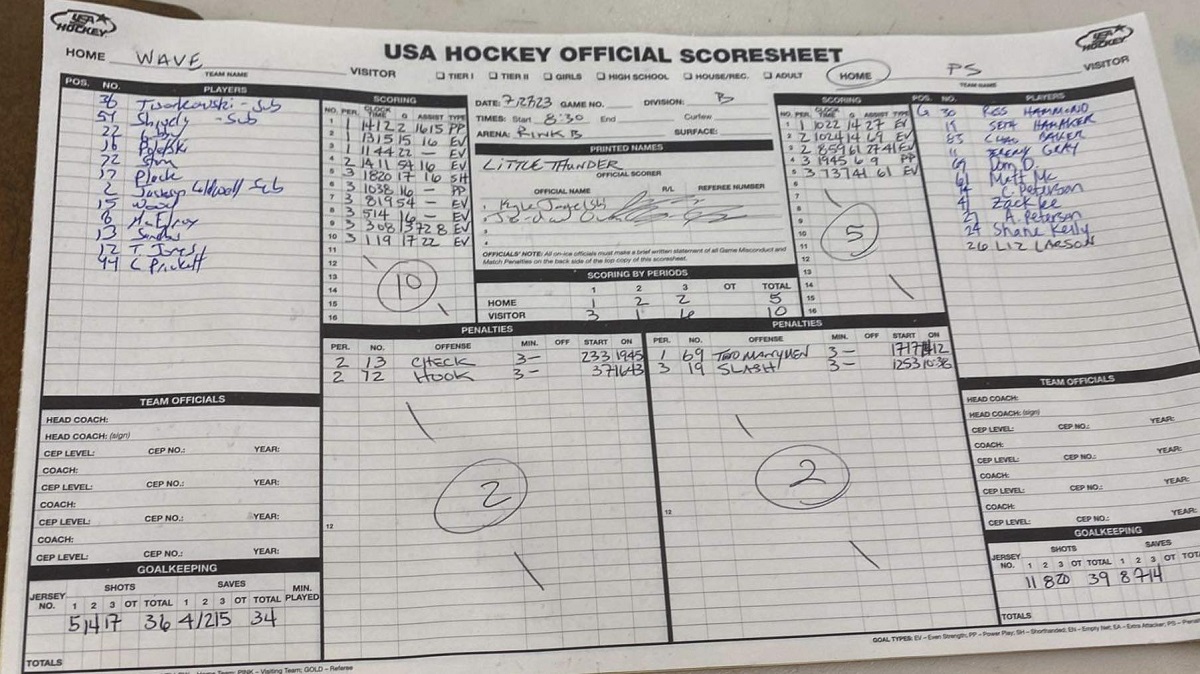 USA HOCKEY
USA HOCKEY
USA HOCKEY OFFICIAL SCORESHEET
HOME WAVE VISITOR
TEAM NAME
☐ TIER I ☐ TIER II ☐ GIRLS ☐ HIGH SCHOOL ☐ HOUSE/REC. ☐ ADULT
HOME PS VISITOR
TEAM NAME
POS. NO. PLAYERS
36 - Sub
54 Shively - Sub
22
16
72
17 Plack
2 Jackson Caldwell Sub
15 Wood
8 McElroy
13
12 T. Jones
44 C Prickett
SCORING
NO. PER. CLOCK TIME G ASSIST TYPE
1 1 1412 2 16 15 PP
2 1 1315 15 16 EV
3 1 1144 22 — EV
4 2 1411 54 16 EV
5 3 1820 17 16 SH
6 3 1038 16 — PP
7 3 819 54 - EV
8 3 514 16 - EV
9 3 308 13 72 8 EV
10 3 119 17 22 EV
11
12
13
14
15
16
10
DATE: GAME NO. DIVISION: B
TIMES: Start 8:30 End Curfew
ARENA: RINK B SURFACE:
PRINTED NAMES
LITTLE THUNDER
OFFICIAL SCORER
OFFICIAL NAME R/L REFEREE NUMBER
OFFICIALS' NOTE: All on-ice officials must make a brief written statement of all Game Misconduct and
Match Penalties on the back side of the top copy of this scoresheet.
SCORING BY PERIODS
1 2 3 OT TOTAL
HOME 1 2 2 5
VISITOR 3 1 6 10
SCORING
NO. PER. CLOCK TIME G ASSIST TYPE
1 1 1022 14 27 EV
2 2 1024 14 69 EV
3 2 859 61 27 41 EV
4 3 1945 6 9 PP
5 3 737 41 61 EV
6
7
8
9
10
11
12
13
14
15
16
5
POS. NO. PLAYERS
G 30 ROSS HAMMOND
19 SETH HAMAKER
83 CHAD BAKER
11 JEREMY GRAY
69 Dom D.
61 Matt Mc
14 C. Peterson
41 Zack Lee
27 A. Peterson
24 Shane Kelly
26 LIZ LARSON
PENALTIES
PER. NO. OFFENSE MIN. OFF START ON
2 13 CHECK 3— 233 1945
2 72 HOOK 3— 37 1643
12
2
PENALTIES
PER. NO. OFFENSE MIN. OFF START ON
1 69 TOO MANY MEN 3— 1717 1412
3 19 SLASH 3— 1253 10:38
12
2
TEAM OFFICIALS
HEAD COACH:
HEAD COACH: (sign)
CEP LEVEL: CEP NO.: YEAR:
COACH:
CEP LEVEL: CEP NO.: YEAR:
COACH:
CEP LEVEL: CEP NO.: YEAR:
COACH:
CEP LEVEL: CEP NO.: YEAR:
TEAM OFFICIALS
HEAD COACH:
HEAD COACH: (sign)
CEP LEVEL: CEP NO.: YEAR:
COACH:
CEP LEVEL: CEP NO.: YEAR:
COACH:
CEP LEVEL: CEP NO.: YEAR:
COACH:
CEP LEVEL: CEP NO.: YEAR:
GOALKEEPING
JERSEY NO. SHOTS 1 2 3 OT TOTAL SAVES 1 2 3 OT TOTAL MIN. PLAYED
5 14 17 36 4 12 15 34
TOTALS
GOALKEEPING
JERSEY NO. SHOTS 1 2 3 OT TOTAL SAVES 1 2 3 OT
11 8 20 39 8 7 14
TOTALS
GOAL TYPES: EV – Even Strength; PP – Power Play; SH – Shorthanded; EN – Empty Net; EA – Extra Attacker; PS –
Home Team; PINK – Visiting Team; GOLD – Referee